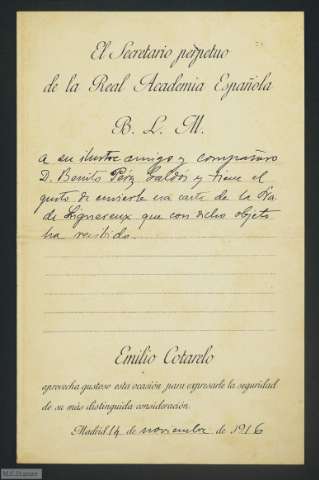 El Secretario perpetuo
de la Real Academia Española
B. L. M.
a su ilustre amigo y compañero
D. Benito Pérez Galdós y tiene el
gusto de enviarle una carta de la Sra
de Lignereux que con dicho objeto
ha recibido.
Emilio Cotarelo
aprovecha gustoso esta ocasión para expresarle la seguridad
de su más distinguida consideración.
Madrid 14 de noviembre de 1916